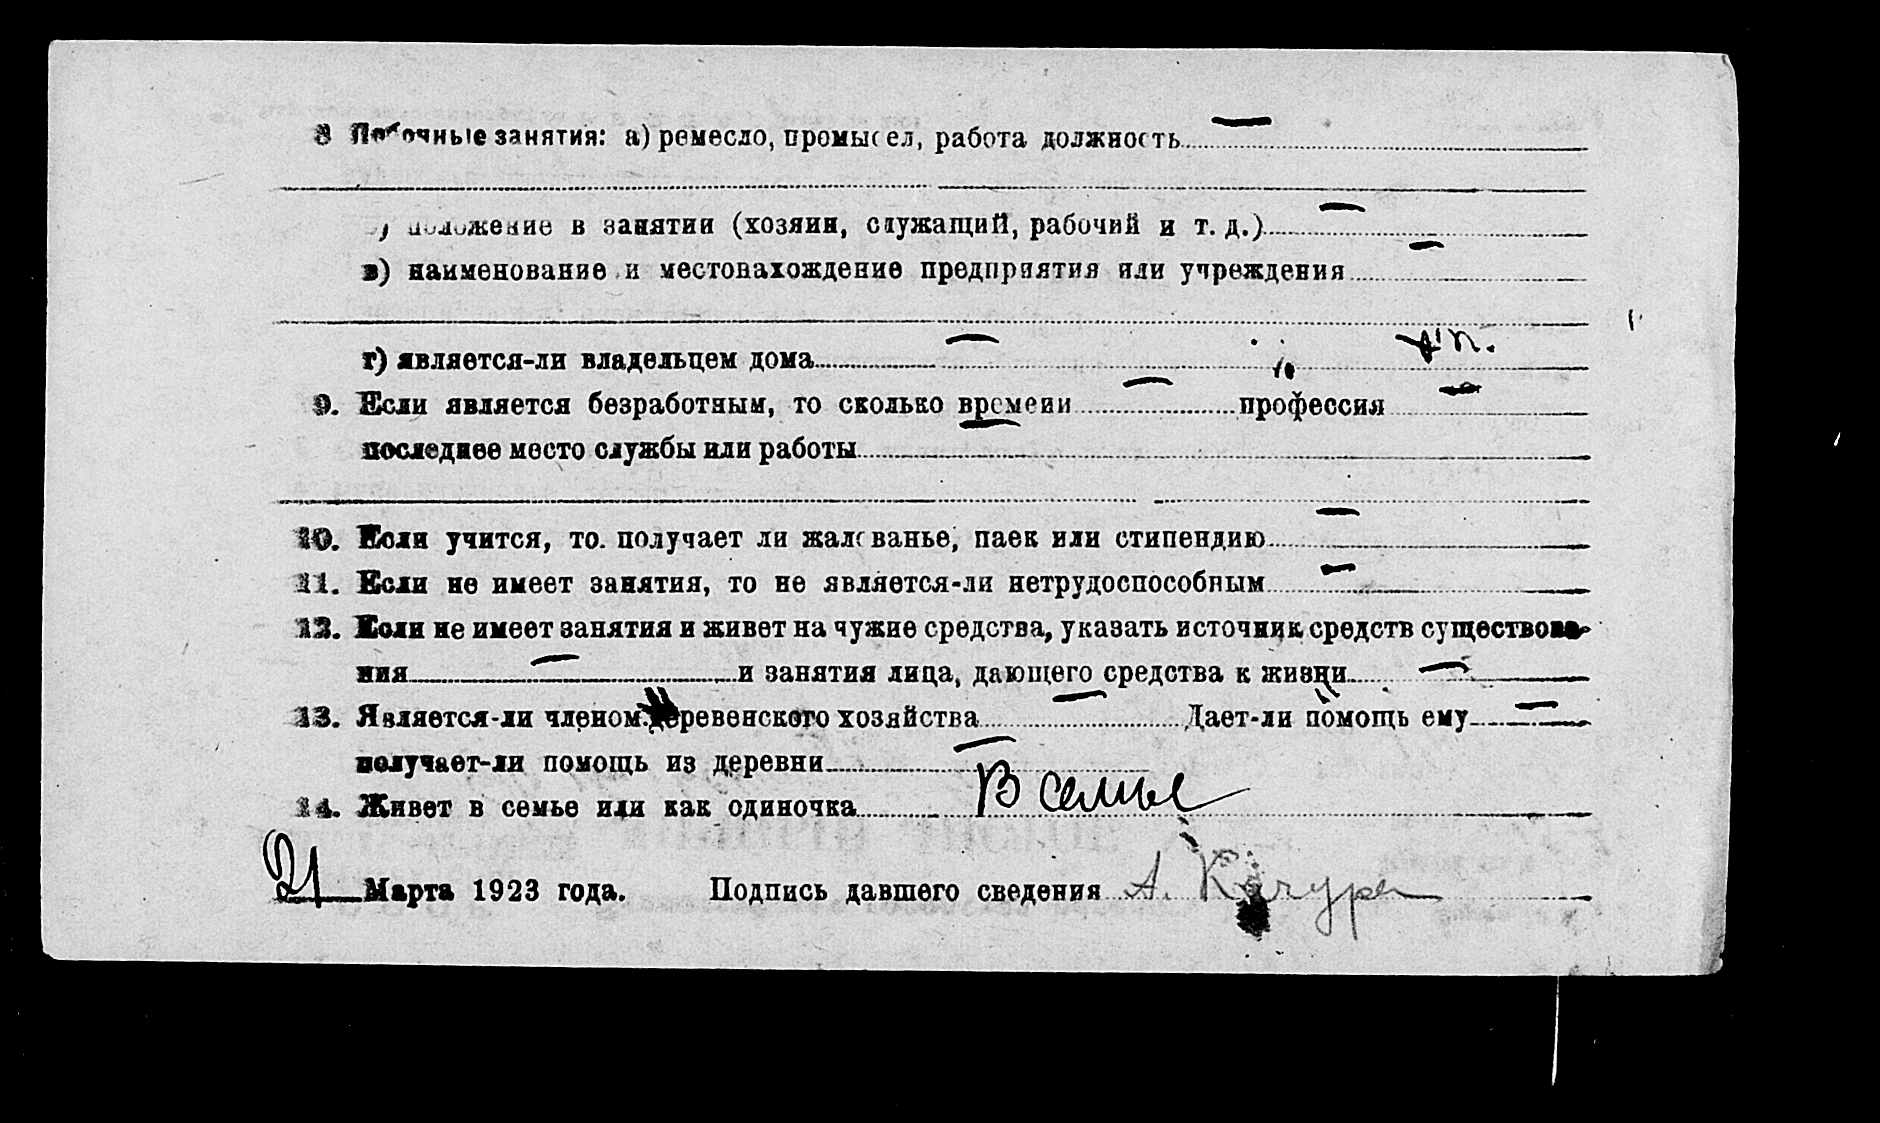 8 Побочные занятия: а) ремесло, промысел, работа должность —
б) положение в занятии (хозяин, служащий, рабочий и т. д.) —
в) наименование и местонахождение предприятия или учреждения —
г) является-ли владельцем дома —
9. Если является безработным, то сколько времени — профессия —
последнее место службы или работы —
10. Если учится, то. получает ли жалованье, паек или стипендию —
11. Если не имеет занятия, то не является-ли нетрудоспособным —
12. Если не имеет занятия и живет на чужие средства, указать источник средств существова-
ния — и занятия лица, дающего средства к жизни —
13. Является-ли членом деревенского хозяйства — Дает-ли помощь ему —
получает-ли помощь из деревни —
14. Живет в семье или как одиночка В семье
21 Марта 1923 года. Подпись давшего сведения А. Качура